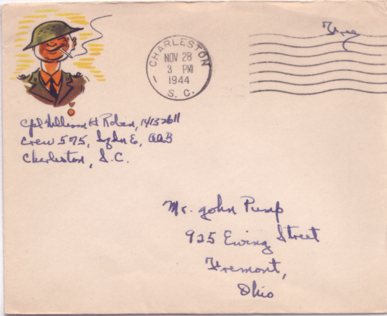 CHARLESTON
NOV 28
3 PM
1944
S. C.
Free
Cpl William H Roben, 14152611
Crew 575, Sqdn E, AAB
Charleston, S.C.
Mr. John Pump
925 Ewing Street
Fremont,
Ohio